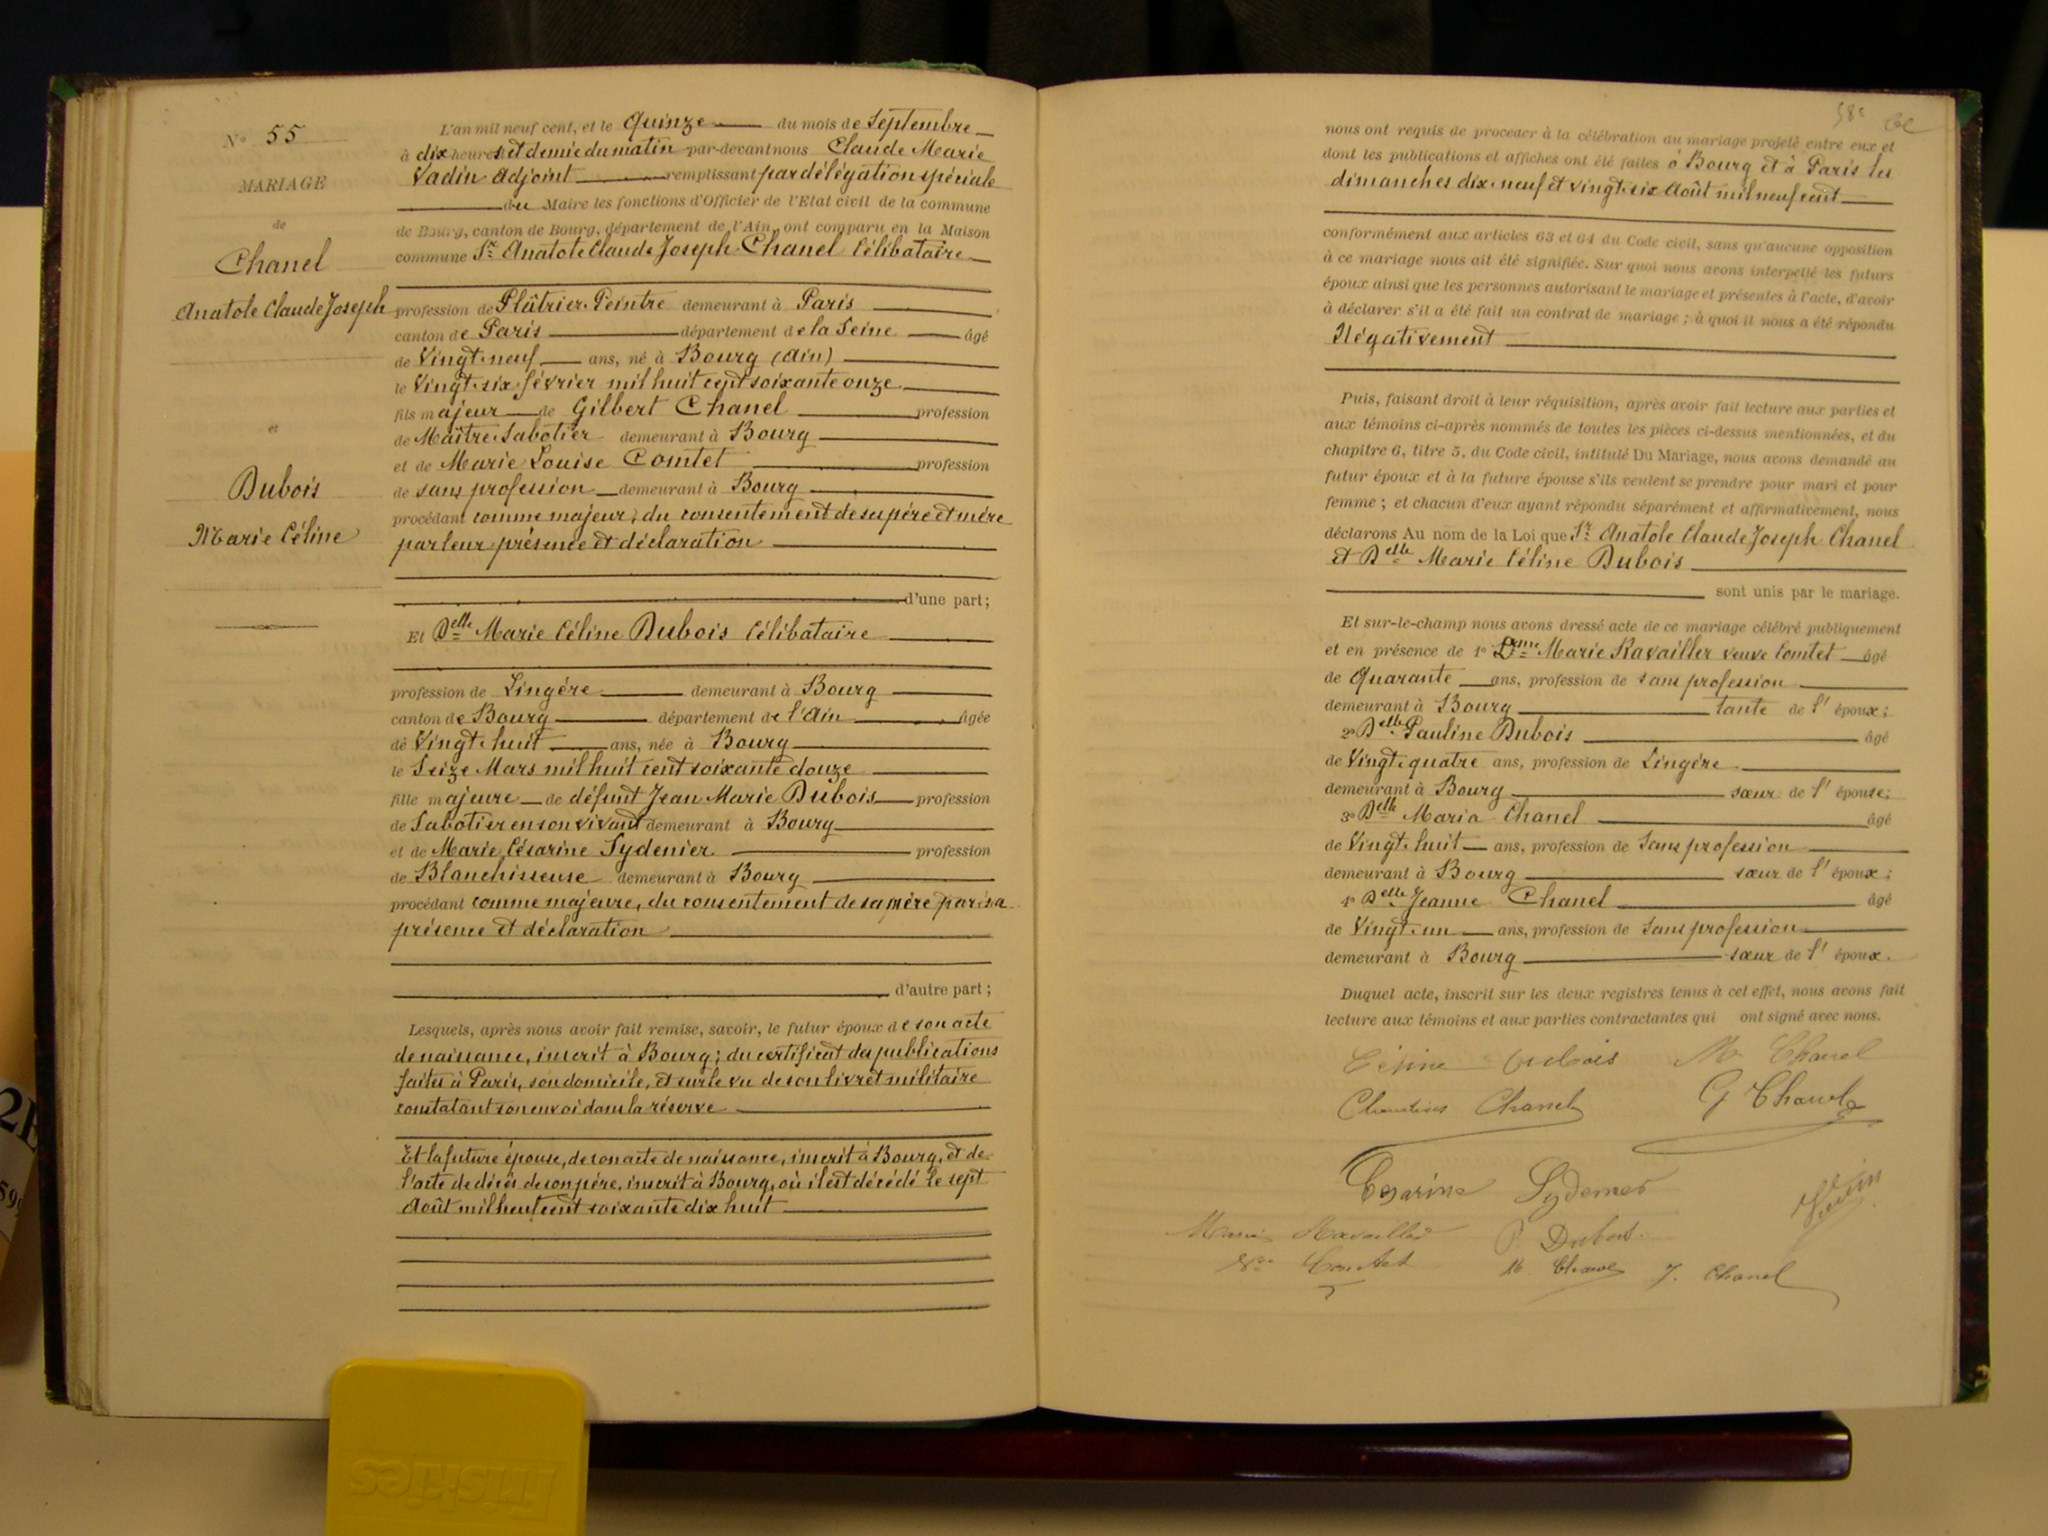 N° 55
MARIAGE
de
Chanel
Anatole Claude Joseph
et
Dubois
Marie Céline
L'an mil neuf cent, et le Quinze du mois de Septembre
à dix heures et demie du matin par-devant nous Claude Marie
Vadin Adjoint remplissant par délégation spéciale
du Maire les fonctions d'Officier de l'Etat civil de la commune
de Bourg, canton de Bourg, département de l'Ain, ont comparu en la Maison
commune Sr Anatole Claude Joseph Chanel Célibataire
profession de Plâtrier-Peintre demeurant à Paris
canton de Paris département de la Seine âgé
de Vingt-neuf ans, né à Bourg (Ain)
le Vingt-six février mil huit cent soixante onze
fils majeur de Gilbert Chanel profession
de Maître-Sabotier demeurant à Bourg
et de Marie Louise Comtet profession
de sans profession demeurant à Bourg
procédant comme majeur, du consentement de ses père et mère
par leur présence et déclaration
d'une part;
Et Delle Marie Céline Dubois Célibataire
profession de Lingère demeurant à Bourg
canton de Bourg département de l'Ain âgée
de Vingt-huit ans, née à Bourg
le Seize Mars mil huit cent soixante douze
fille majeure de défunt Jean Marie Dubois profession
de Sabotier en son vivant demeurant à Bourg
et de Marie Césarine Sydenier profession
de Blanchisseuse demeurant à Bourg
procédant comme majeure, du consentement de sa mère par sa
présence et déclaration
d'autre part;
Lesquels, après nous avoir fait remise, savoir, le futur époux de son acte
de naissance, inscrit à Bourg; du certificat des publications
faites à Paris, son domicile, et sur le vu de son livret militaire
constatant son envoi dans la réserve
Et la future épouse, de son acte de naissance, inscrit à Bourg, et de
l'acte de décès de son père, inscrit à Bourg, où il est décédé le sept
Août mil huit cent soixante dix huit
58e
nous ont requis de procéder à la célébration du mariage projeté entre eux et
dont les publications et affiches ont été faites à Bourg et à Paris les
dimanches dix-neuf et vingt-six Août mil neuf cent
conformément aux articles 63 et 64 du Code civil, sans qu'aucune opposition
à ce mariage nous ait été signifiée. Sur quoi nous avons interpellé les futurs
époux ainsi que les personnes autorisant le mariage et présentes à l'acte, d'avoir
à déclarer s'il a été fait un contrat de mariage; à quoi il nous a été répondu
Négativement
Puis, faisant droit à leur réquisition, après avoir fait lecture aux parties et
aux témoins ci-après nommés de toutes les pièces ci-dessus mentionnées, et du
chapitre 6, titre 5, du Code civil, intitulé Du Mariage, nous avons demandé au
futur époux et à la future épouse s'ils veulent se prendre pour mari et pour
femme; et chacun d'eux ayant répondu séparément et affirmativement, nous
déclarons Au nom de la Loi que Sr Anatole Claude Joseph Chanel
et Delle Marie Céline Dubois
sont unis par le mariage.
Et sur-le-champ nous avons dressé acte de ce mariage célébré publiquement
et en présence de 1° Dme Marie Ravailler veuve Comtet âgé
de Quarante ans, profession de sans profession
demeurant à Bourg tante de l'époux;
2° Delle Pauline Dubois âgé
de Vingt-quatre ans, profession de Lingère
demeurant à Bourg sœur de l'épouse;
3° Delle Maria Chanel âgé
de Vingt-huit ans, profession de Sans profession
demeurant à Bourg sœur de l'époux;
4° Delle Jeanne Chanel âgé
de Vingt-un ans, profession de Sans profession
demeurant à Bourg sœur de l'époux.
Duquel acte, inscrit sur les deux registres tenus à cet effet, nous avons fait
lecture aux témoins et aux parties contractantes qui ont signé avec nous.
Céline Dubois
Chanel
Chanel
G Chanel
Césarine Sydenier
Vadin
Marie Ravailler
P Dubois
Vve Comtet
M Chanel
J. Chanel